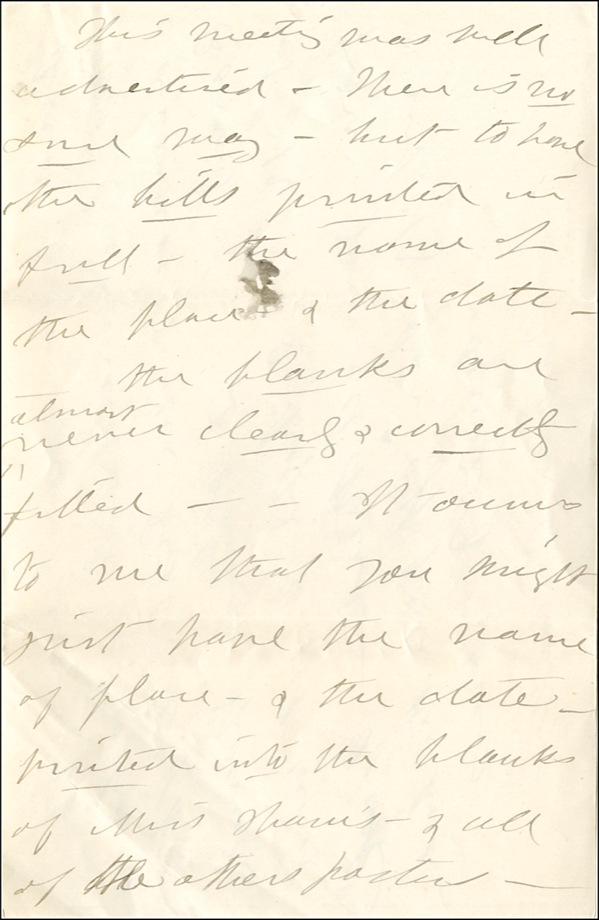 This meeting was well
advertised – There is no
sure way – but to have
the bills printed in
full – the name of
the place & the date –
– the blanks are
almost
never clearly & correctly
filled – – It occurs
to me that you might
just have the name
of place – & the date –
printed into the blanks
of Miss Shaw's – & all
of the others posters –